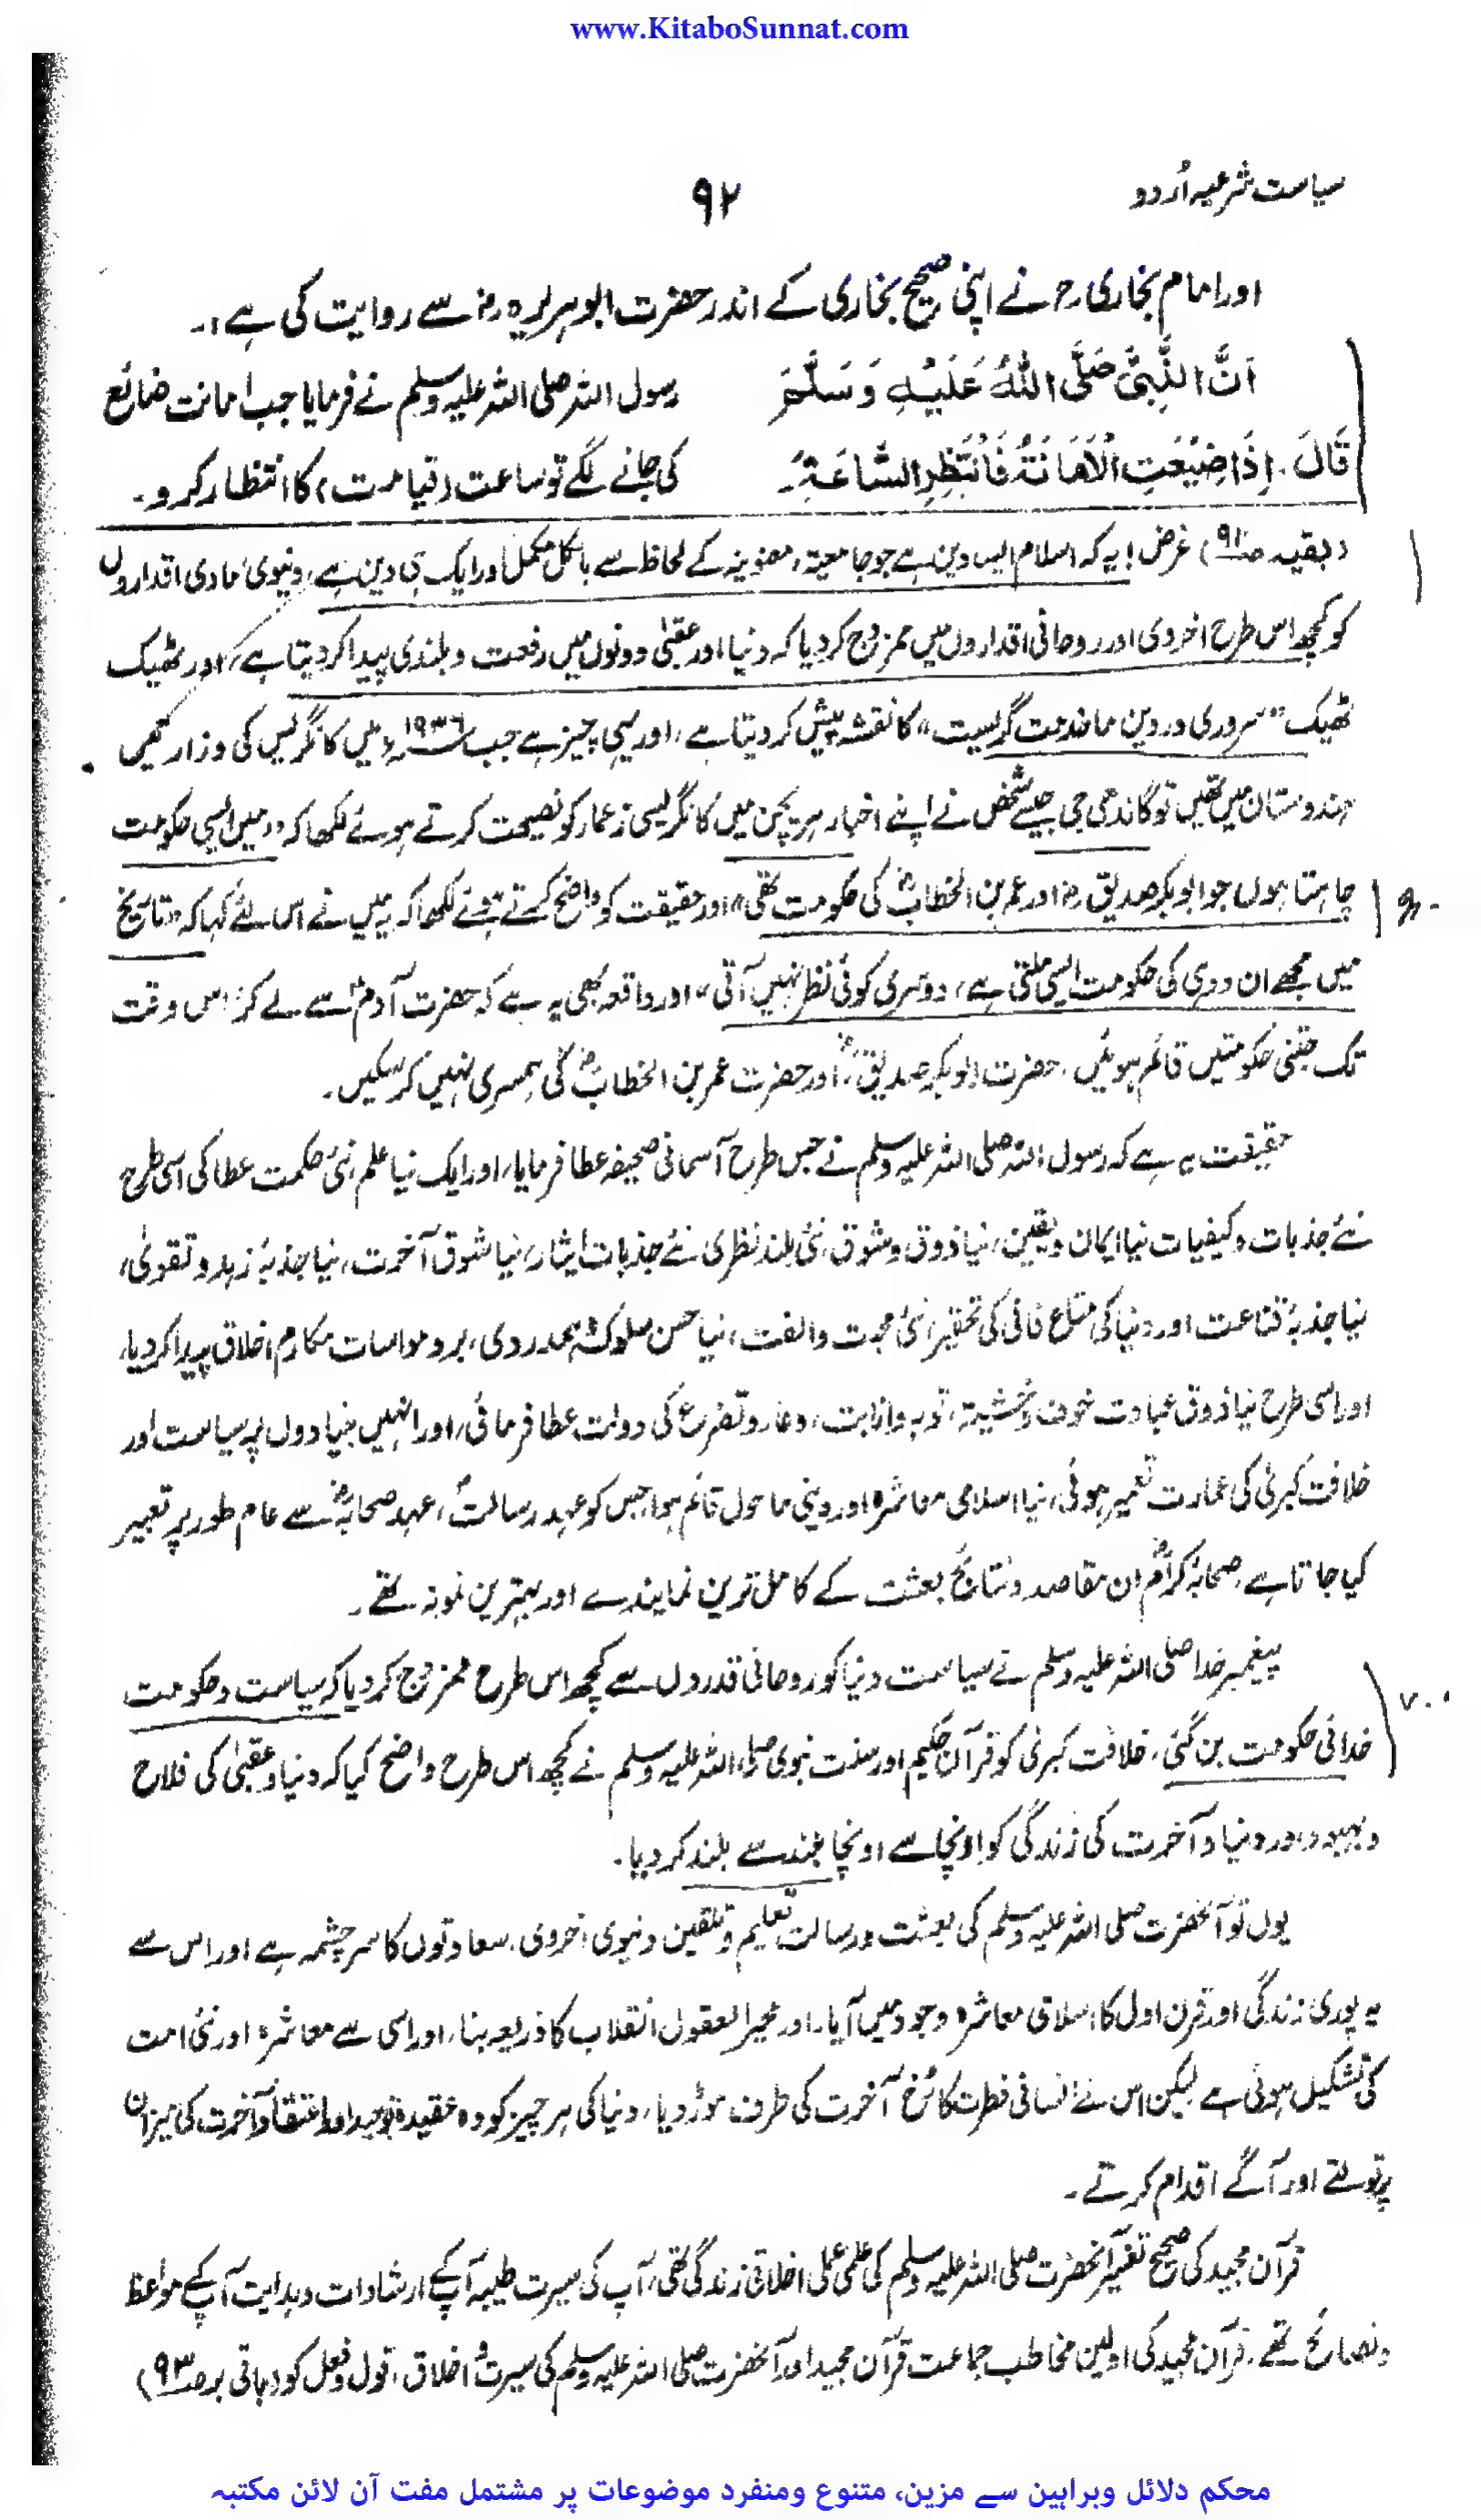 www.KitaboSunnat.com
سیاست شرعیہ اُردو
۹۲
اور امام بخاری رح نے اپنی صحیح بخاری کے اندر حضرت ابوہریرہ رض سے روایت کی ہے:۔
اَنَّ النَّبِیَّ صَلَّی اللّٰہُ عَلَیْہِ وَسَلَّمَ
قَالَ۔ اِذَا ضُیِّعَتِ الْاَمَانَۃُ فَانْتَظِرِ السَّاعَۃَ۔
رسول اللہ صلی اللہ علیہ وسلم نے فرمایا جب امانت ضائع
کی جانے لگے تو ساعت (قیامت) کا انتظار کرو۔
(بقیہ صـ۹۱) غرض! یہ کہ اسلام ایسا دین ہے جو جامعیۃ، معنویۃ کے لحاظ سے بالکل مکمل اور ایک ہی دین ہے، دنیوی، مادی اقداروں
کو کچھ اس طرح اخروی اور روحانی اقداروں میں ممزوج کردیا کہ دنیا اور عقبیٰ دونوں میں رفعت و بلندی پیدا کردیتا ہے، اور ٹھیک
ٹھیک "سروری در دین ما خدمت گریست" کا نقشہ پیش کردیتا ہے، اور یہی چیز ہے جب ۱۹۳۶ء میں کانگریس کی وزارتیں
ہندوستان میں تھیں تو گاندھی جی جیسے شخص نے اپنے اخبار ہریجن میں کانگریسی زعمار کو نصیحت کرتے ہوئے لکھا کہ "میں ایسی حکومت
چاہتا ہوں جو ابوبکر صدیق رض اور عمر بن الخطابؓ کی حکومت تھی" اور حقیقت کو واضح کرتے ہوئے لکھا کہ یہ میں نے اس لئے کہا کہ "تاریخ
میں مجھے ان دو ہی کی حکومت ایسی ملتی ہے، دوسری کوئی نظر نہیں آتی" اور واقعہ بھی یہ ہے کہ حضرت آدمؑ سے لے کر اس وقت
تک جتنی حکومتیں قائم ہوئیں، حضرت ابوبکر صدیقؓ، اور حضرت عمر بن الخطابؓ کی ہمسری نہیں کرسکیں۔
حقیقت یہ ہے کہ رسول اللہ صلی اللہ علیہ وسلم نے جس طرح آسمانی صحیفہ عطا فرمایا، اور ایک نیا علم، نئی حکمت عطا کی اسی طرح
نئے جذبات و کیفیات نیا ایمان و یقین، نیا ذوق و شوق، نئی بلند نظری نئے جذبات ایثار، نیا شوق آخرت، نیا جذبۂ زہد و تقویٰ،
نیا جذبۂ قناعت اور دنیا کی متاع فانی کی تحقیر، نئی محبت والفت، نیا حسن سلوک و ہمدردی، بر و مواسات مکارم اخلاق پیدا کردیا،
اور اسی طرح نیا ذوق عبادت خوف و خشیۃ، توبہ و انابت، دعار و تضرع کی دولت عطا فرمائی، اور انہیں بنیادوں پہ سیاست اور
خلافت کبریٰ کی عمارت تعمیر ہوئی، نیا اسلامی معاشرہ اور دینی ماحول قائم ہوا، جس کو عہد رسالتؐ، عہد صحابہؓ سے عام طور پر تعبیر
کیا جاتا ہے، صحابۂ کرامؓ ان مقاصد و نتائج بعثت کے کامل ترین نمایندے اور بہترین نمونہ تھے۔
پیغمبر خدا صلی اللہ علیہ وسلم نے سیاست دنیا کو روحانی قدروں سے کچھ اس طرح ممزوج کردیا کہ سیاست و حکومت
خدائی حکومت بن گئی، خلافت کبریٰ کو قرآن حکیم اور سنت نبوی صلی اللہ علیہ وسلم نے کچھ اس طرح واضح کیا کہ دنیا و عقبیٰ کی فلاح
و بہبود، اور دنیا و آخرت کی زندگی کو اونچا سے اونچا بلند سے بلند کردیا۔
یوں تو آنحضرت صلی اللہ علیہ وسلم کی بعثت و رسالت تعلیم و تلقین دنیوی اخروی، سعادتوں کا سرچشمہ ہے اور اس سے
یہ پوری زندگی اور قرن اول کا اسلامی معاشرہ وجود میں آیا، اور محیر العقول انقلاب کا ذریعہ بنا، اور اسی سے معاشرہ اور نئی امت
کی تشکیل ہوئی ہے لیکن اس نے انسانی فطرت کا رُخ آخرت کی طرف موڑ دیا، دنیا کی ہر چیز کو وہ عقیدۂ توحید اور اعتقاد آخرت کی میزان
پر تولتے اور آگے اقدام کرتے۔
قرآن مجید کی صحیح تفسیر آنحضرت صلی اللہ علیہ وسلم کی علمی عملی اخلاقی زندگی تھی، آپ کی سیرت طیبہ آپکے ارشادات و ہدایت آپکے مواعظ
و نصائح تھے، قرآن مجید کی اولین مخاطب جماعت قرآن مجید اور آنحضرت صلی اللہ علیہ وسلم کی سیرت و اخلاق، قول و فعل کو (باقی بر صـ۹۳)
محکم دلائل وبراہین سے مزین، متنوع ومنفرد موضوعات پر مشتمل مفت آن لائن مکتبہ